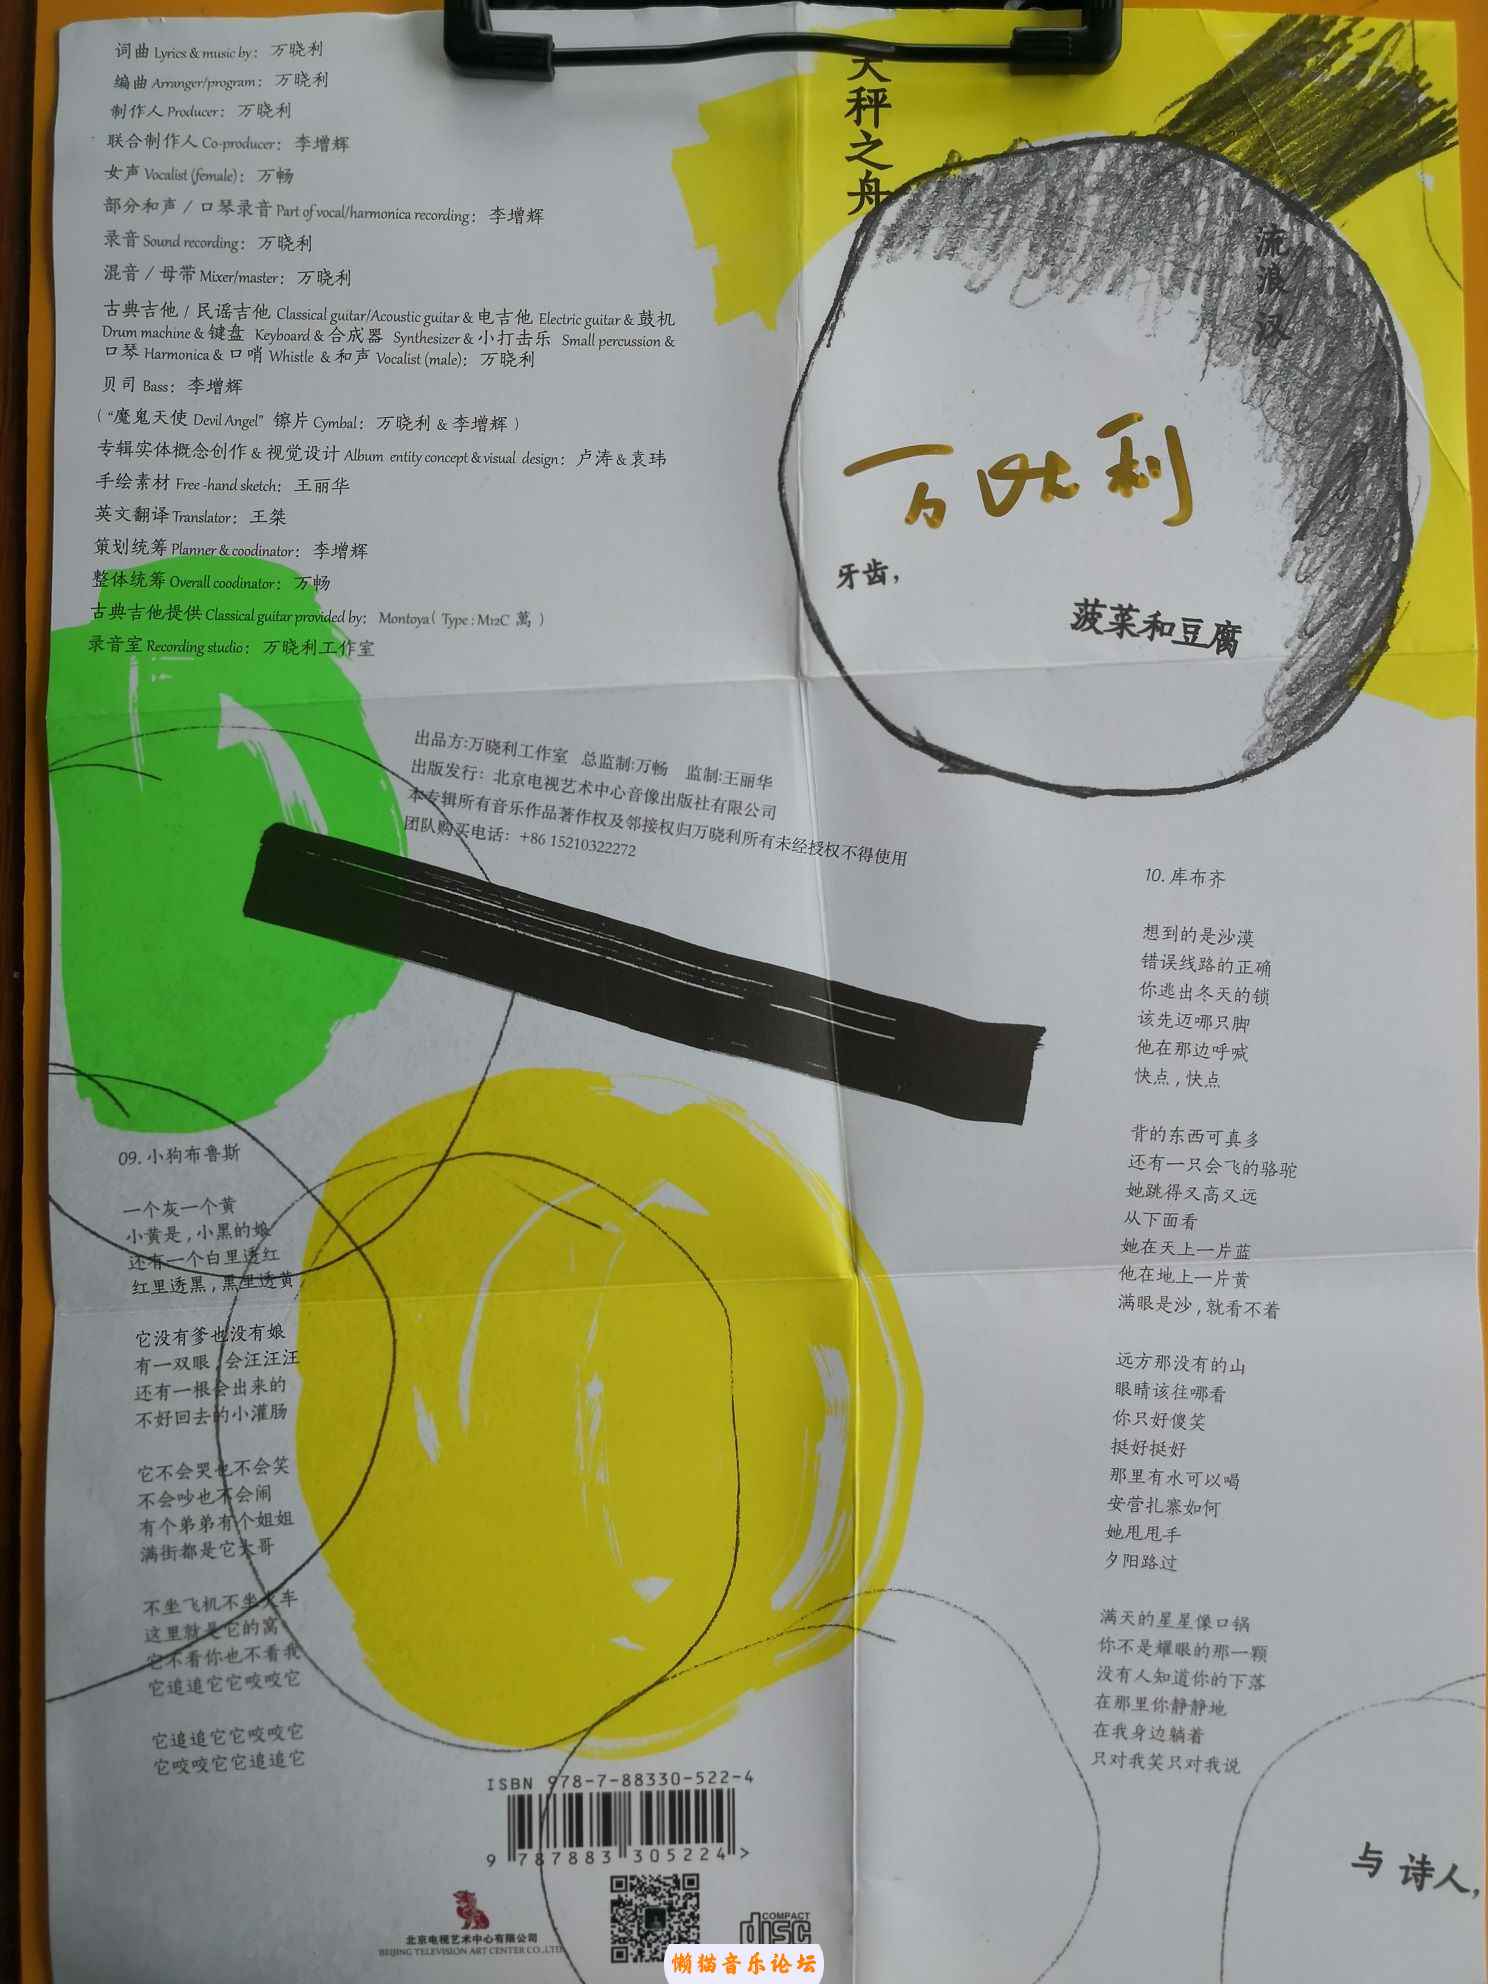 词曲 Lyrics & music by：万晓利
编曲 Arranger/program：万晓利
制作人 Producer：万晓利
联合制作人 Co-producer：李增辉
女声 Vocalist (female)：万畅
部分和声 / 口琴录音 Part of vocal/harmonica recording：李增辉
录音 Sound recording：万晓利
混音 / 母带 Mixer/master：万晓利
古典吉他 / 民谣吉他 Classical guitar/Acoustic guitar & 电吉他 Electric guitar & 鼓机
Drum machine & 键盘 Keyboard & 合成器 Synthesizer & 小打击乐 Small percussion &
口琴 Harmonica & 口哨 Whistle & 和声 Vocalist (male)：万晓利
贝司 Bass：李增辉
（ “魔鬼天使 Devil Angel” 镲片 Cymbal：万晓利 & 李增辉 ）
专辑实体概念创作 & 视觉设计 Album entity concept & visual design：卢涛 & 袁玮
手绘素材 Free -hand sketch：王丽华
英文翻译 Translator：王桀
策划统筹 Planner & coodinator：李增辉
整体统筹 Overall coodinator：万畅
古典吉他提供 Classical guitar provided by： Montoya（ Type : M12C 萬 ）
录音室 Recording studio：万晓利工作室
天秤之舟
流浪汉
万晓利
牙齿，
菠菜和豆腐
出品方:万晓利工作室 总监制:万畅 监制:王丽华
出版发行：北京电视艺术中心音像出版社有限公司
本专辑所有音乐作品著作权及邻接权归万晓利所有未经授权不得使用
团队购买电话：+86 15210322272
09. 小狗布鲁斯
一个灰一个黄
小黄是，小黑的娘
还有一个白里透红
红里透黑，黑里透黄
它没有爹也没有娘
有一双眼，会汪汪汪
还有一根会出来的
不好回去的小灌肠
它不会哭也不会笑
不会吵也不会闹
有个弟弟有个姐姐
满街都是它大哥
不坐飞机不坐火车
这里就是它的窝
它不看你也不看我
它追追它它咬咬它
它追追它它咬咬它
它咬咬它它追追它
10. 库布齐
想到的是沙漠
错误线路的正确
你逃出冬天的锁
该先迈哪只脚
他在那边呼喊
快点，快点
背的东西可真多
还有一只会飞的骆驼
她跳得又高又远
从下面看
她在天上一片蓝
他在地上一片黄
满眼是沙，就看不着
远方那没有的山
眼睛该往哪看
你只好傻笑
挺好挺好
那里有水可以喝
安营扎寨如何
她甩甩手
夕阳路过
满天的星星像口锅
你不是耀眼的那一颗
没有人知道你的下落
在那里你静静地
在我身边躺着
只对我笑只对我说
与 诗人，
ISBN 978-7-88330-522-4
9 787883 305224 >
北京电视艺术中心有限公司
BEIJING TELEVISION ART CENTER CO.,LTD
COMPACT
disc
懒猫音乐论坛